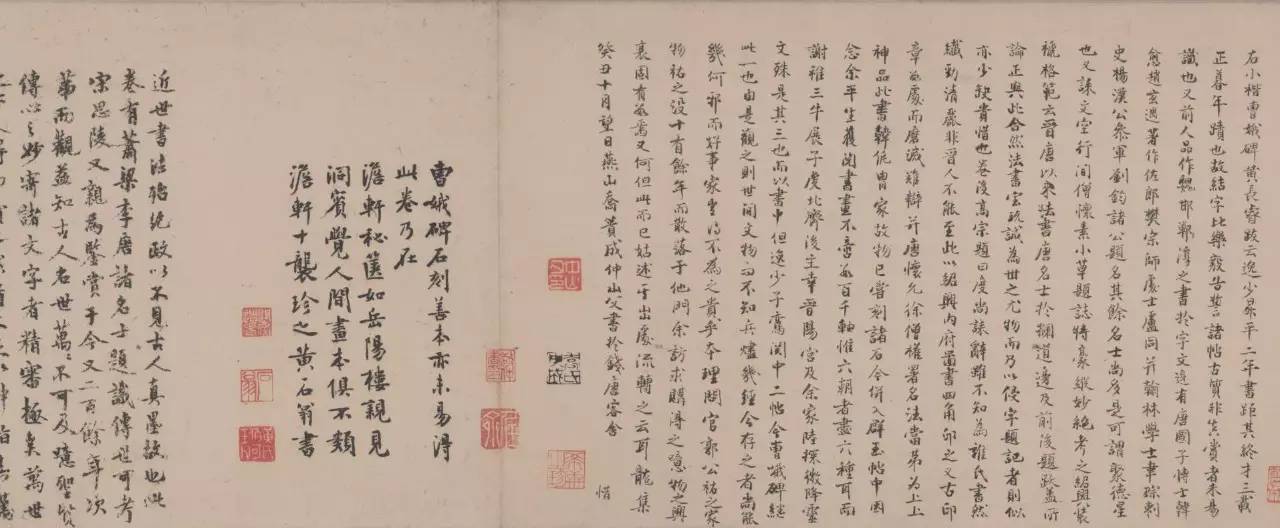 右小楷曹娥碑黄長睿跋云逸少昇平二年書距其終才三載
正暮年蹟也故結字比樂毅告誓諸帖古質非真賞者未易
識也又前人品作魏邯鄲淳之書於字文邊有唐國子博士韓
愈趙玄遇著作佐郎樊宗師處士盧同并翰林學士韋琮刺
史楊漢公參軍劉鈞諸公題名其餘名士尚多是可謂聚德星
也又誄文空行間僧懷素小草題誌特豪縱妙絶考之紹興裝
褫格範云晉唐以來法書唐名士於攔道邊及前後題跋盖所
論正與此合然法書空誠為世之尤物而乃以侵字題記者則似
亦少缺貴惜也卷後高宗題曰度尚誄辭雖不知為誰氏書然
纖勁清麗非晉人不能至此以紹興内府啚書四角印之又古印
章數處而磨滅難辯并唐懷允徐僧權署名法當第為上上
神品此書韓侂冑家故物已嘗刻諸石今併入群玉帖中因
念余平生獲閱書畫不啻數百千軸惟六朝者盡六種耳而
謝稚三牛展子虔北齊後主幸晉陽宮及余家陸探微降靈
文殊是其三也而以書中但逸少子鸞閱中二帖今曹娥碑繼
此一也由是觀之則世間文物不知兵燼幾經今存之者尚能
幾何邪而好事家要得不為之貴乎本理問官郭公祐之家
物祐之没十有餘年而散落于他門余訪求購得之噫物之興
衰固有數焉又何但此而已姑述于出處流轉之云耳龍集
癸丑十月望日燕山喬簣成仲山父書於錢唐客舍
惜
曹娥碑石刻善本亦未易得
此卷乃在
澹軒秘篋如岳陽樓親見
洞賓覺人間畫本俱不類
澹軒十襲珍之黄石翁書
近世書法殆絶政以不見古人真墨故也此
卷有蕭梁李唐諸名士題識傳世可考
宋思陵又親為鑒賞于今又二百餘年次
第而觀益知古人名世萬萬不可及噫聖賢
傳心之妙寄諸文字者精審極矣萬世